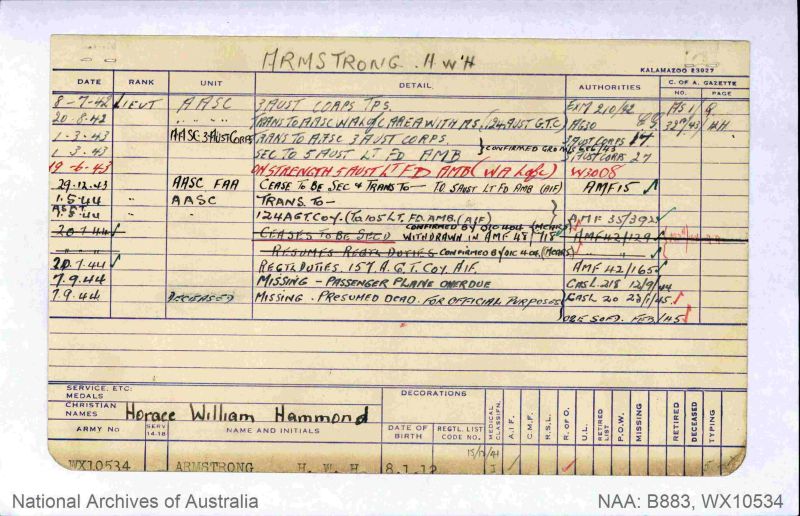 ARMSTRONG. H W H
KALAMAZOO 23927
DATE RANK UNIT DETAIL AUTHORITIES C. OF A. GAZETTE
NO. PAGE
8-7-42 LIEUT AASC 3 AUST CORPS TPS. EXM 210/42 AS1 9
20-8-42 " " " " TRANS TO AASC WA L of C AREA WITH M.S. (124 AUST G.T.C) AG30
1-3-43 AASC 3 AUST CORPS TRANS TO AASC 3 AUST CORPS. 3 AUST CORPS 17.
1. 3. 43 SEC TO 5 AUST LT FD AMB (CONFIRMED 3 AUST CORPS 27
19-6-43 ON STRENGTH 5 AUST LT FD AMB (WA L of C) W3008
29.12.43 AASC FAA CEASE TO BE SEC & TRANS TO- TO 5 AUST LT FD AMB (AIF) AMF15
1.5.44 " AASC TRANS. TO-
1.5.44 " 124 A.G.T. COY. (TO 105 LT. FD. AMB. (AIF) AMF 35/392
CONFIRMED BY DIC 404 (MCARS)
20.7.44 CEASES TO BE SEC'D WITHDRAWN IN AMF 48/718 AMF 42/129
" " " RESUMES REGTL DUTIES CONFIRMED BY DIC 404 (MCARS) " "
20.7.44 REGTL DUTIES. 157 A.G.T. COY. AIF. AMF 42/165
7.9.44 MISSING - PASSENGER PLANE OVERDUE CASL 218 12/9/44
7.9.44 DECEASED MISSING. PRESUMED DEAD. FOR OFFICIAL PURPOSES CASL 20 23/1/45
FEB/45
SERVICE, ETC:
MEDALS DECORATIONS
CHRISTIAN NAMES Horace William Hammond
ARMY No SERV. 14-18 NAME AND INITIALS DATE OF BIRTH REGTL. LIST CODE NO. MEDICAL CLASSIFN. A.I.F. C.M.F. R.S.L. R. OF O. U.L. RETIRED LIST P.O.W. MISSING RETIRED DECEASED TYPING
15/12/41
WX10534 ARMSTRONG H. W. H. 8.1.12
National Archives of Australia NAA: B883, WX10534